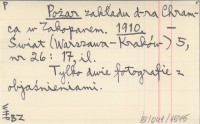 P
Pożar zakładu d-ra Chram-
ca w Zakopanem. 1910. –
Świat (Warszawa-Kraków) 5,
nr 26 : 17, il.
Tylko dwie fotografie z
objaśnieniami.
BZ